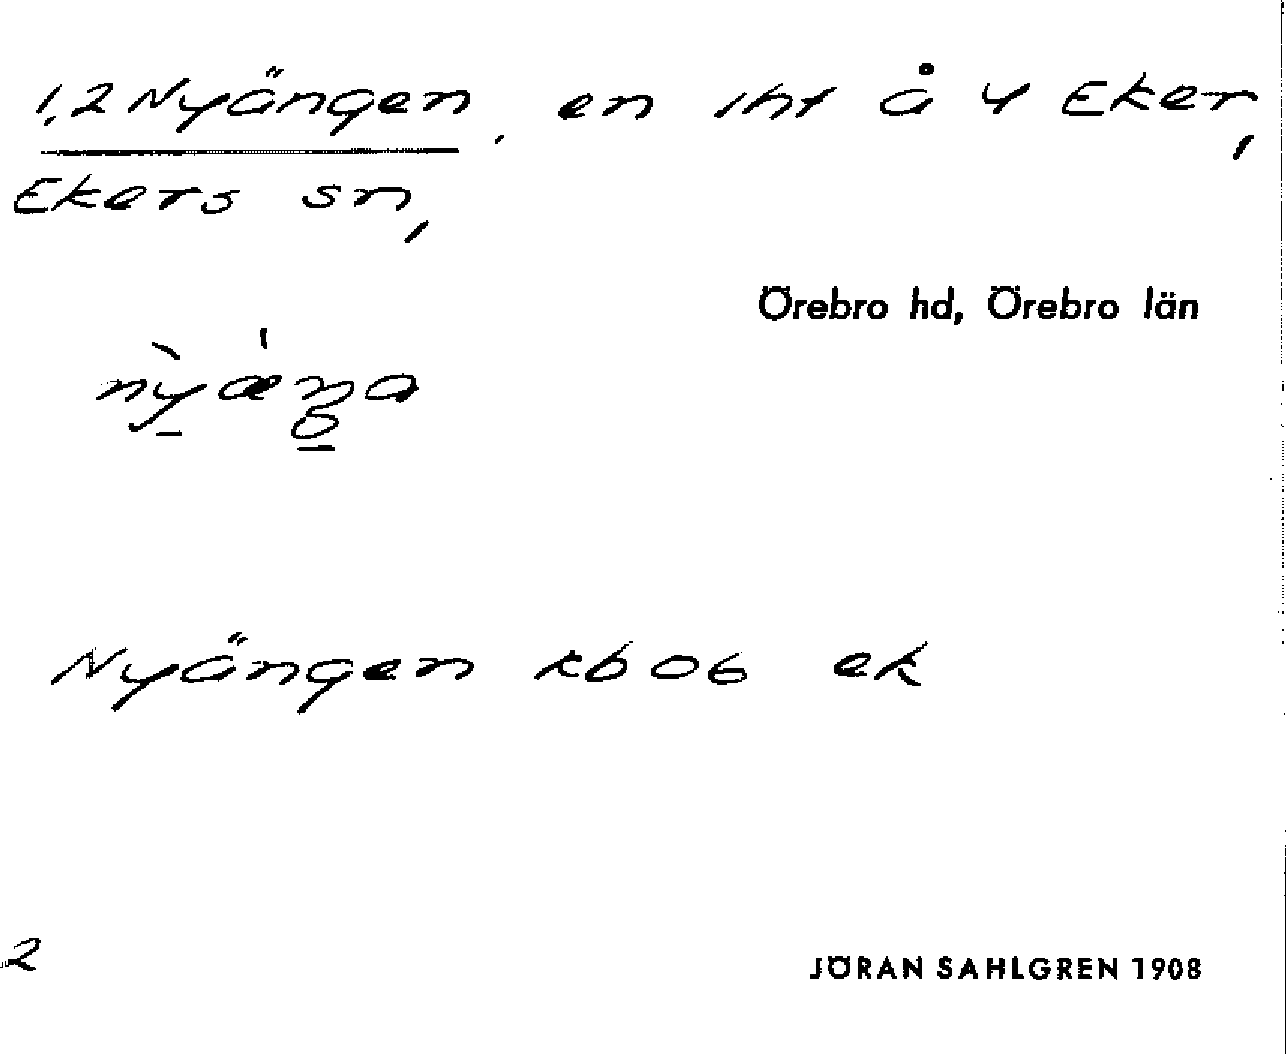 1,2 Nyängen, en lht å 4 Eker,
Ekers sn,
Örebro hd, Örebro län
nỳǽŋa
Nyängen kb 06 ek
2
JÖRAN SAHLGREN 1908